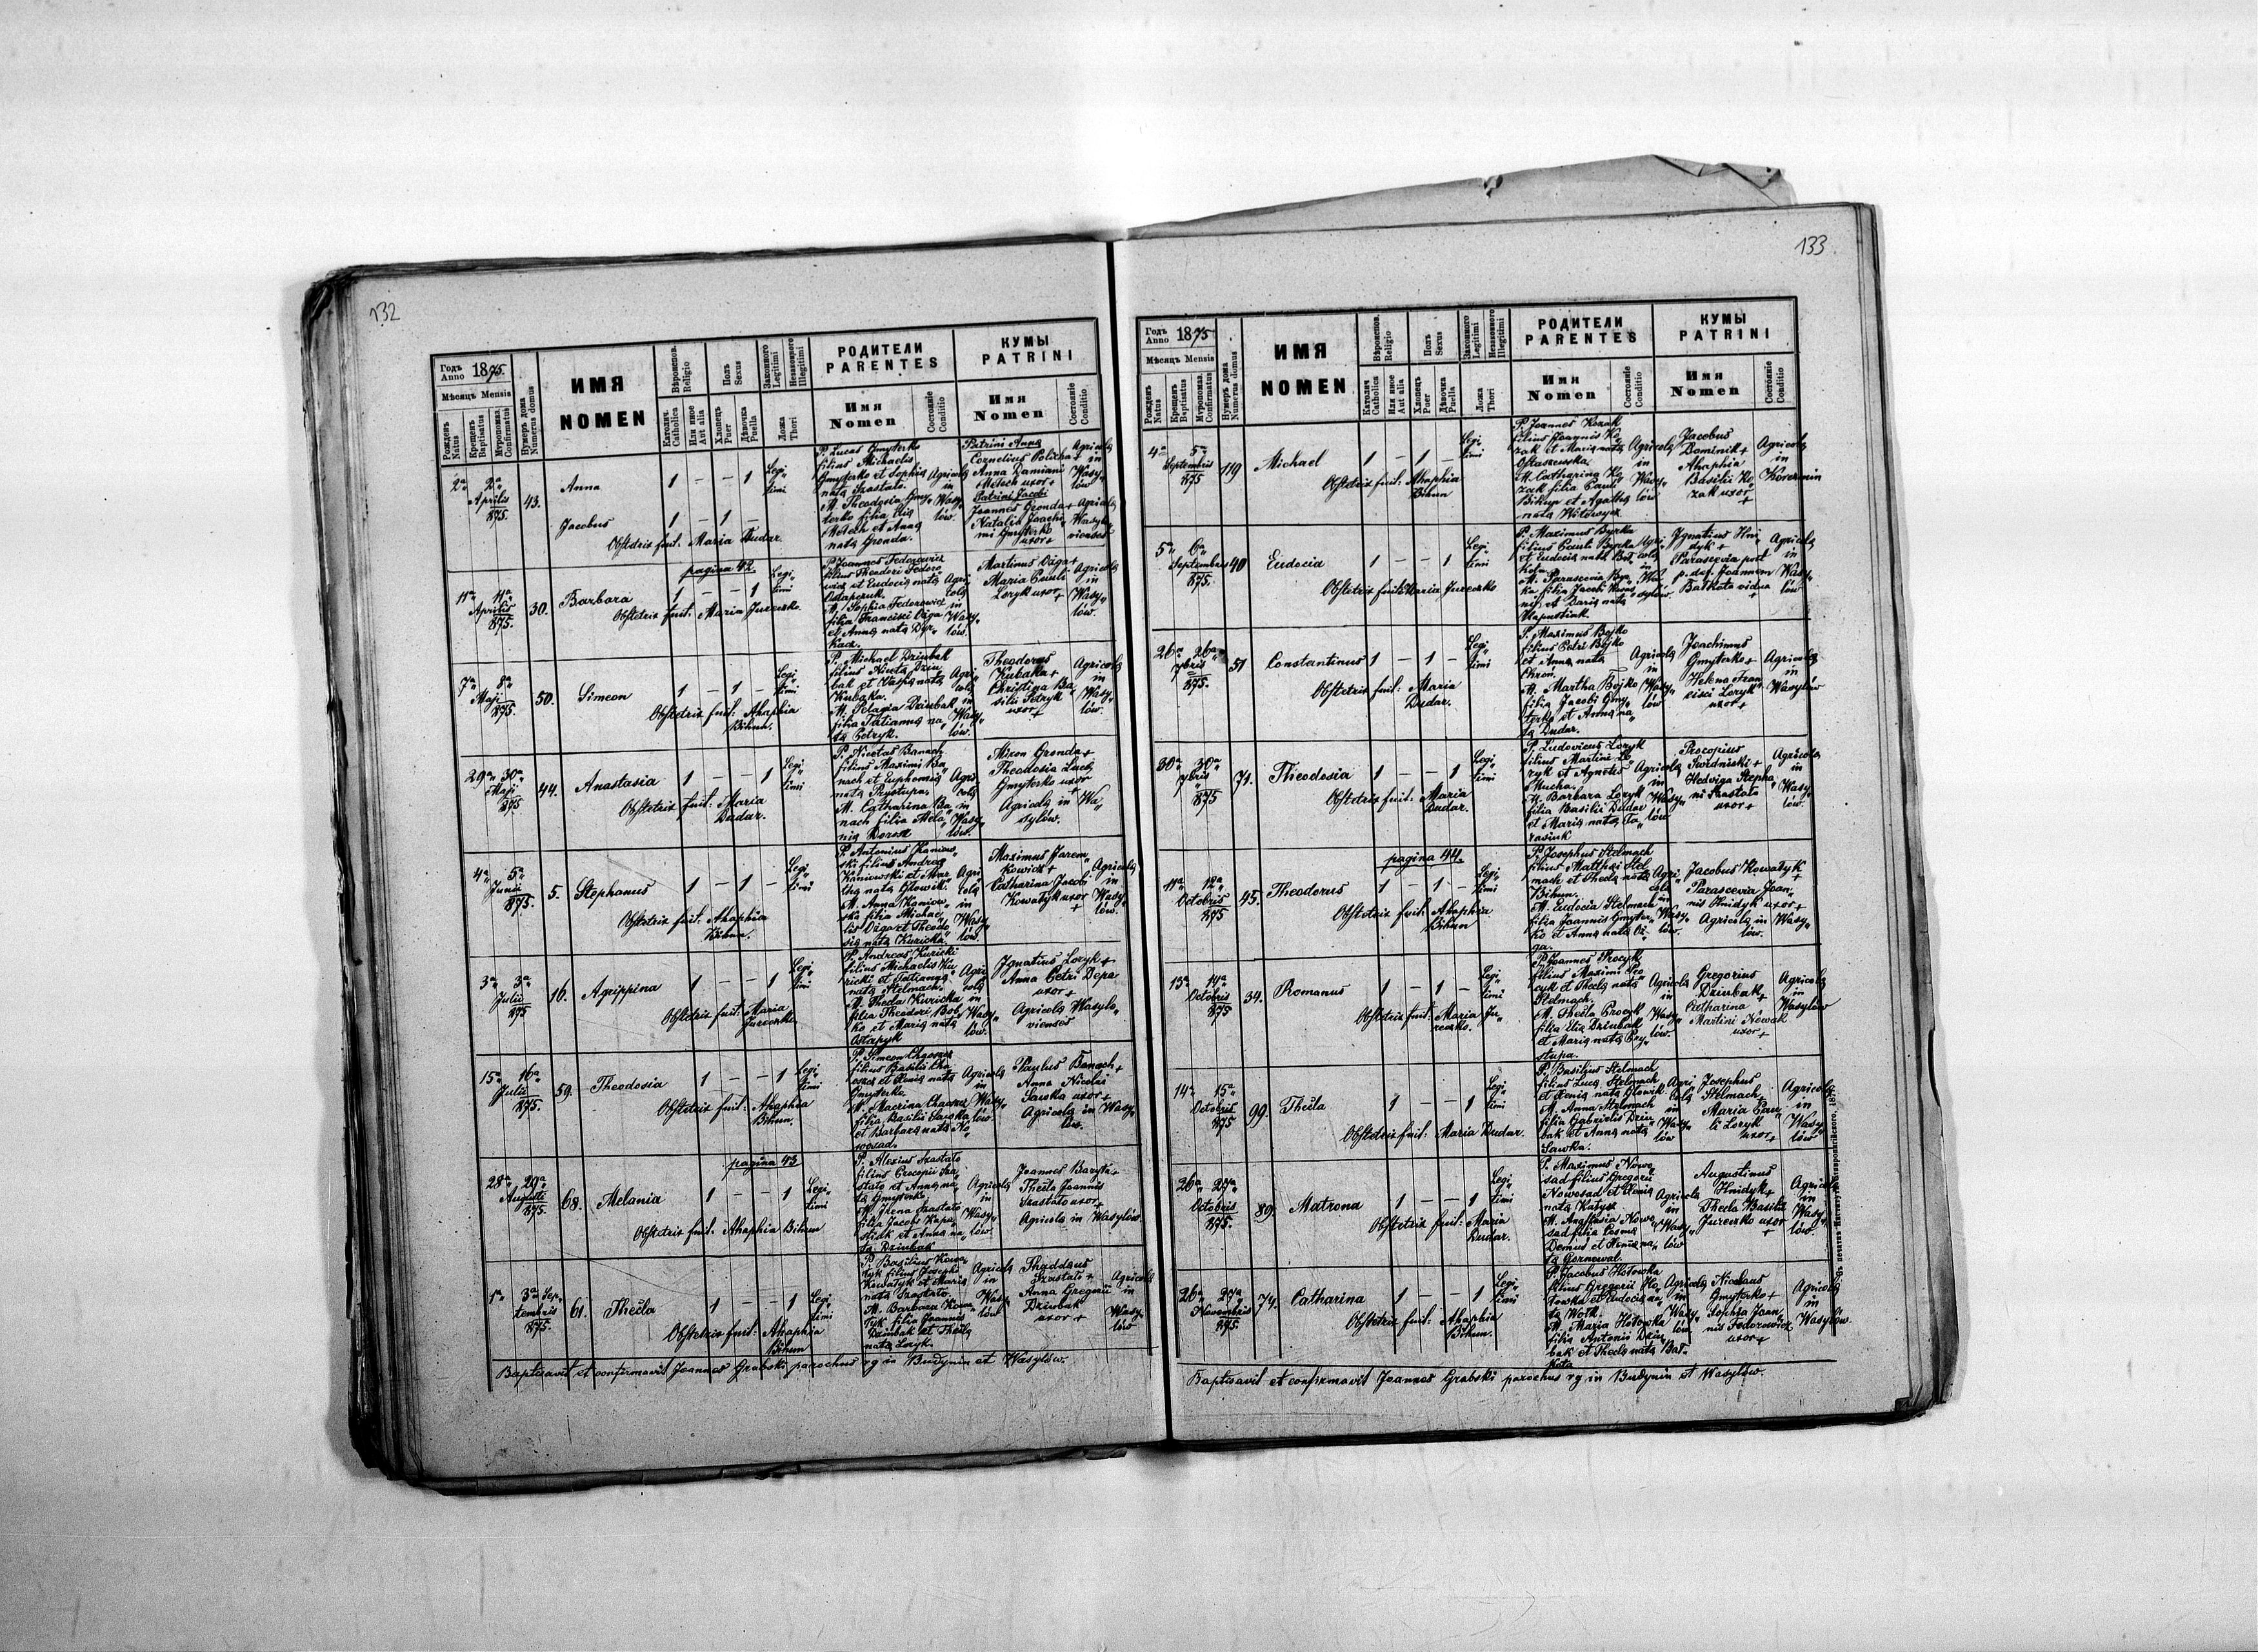 132
Годъ Anno 1875.
Мѣсяцъ Mensis
Рожденъ Natus
Крещенъ Baptisatus
Мѵропомаз. Confirmatus
Нумеръ дома Numerus domus
ИМЯ
NOMEN
Вѣроиспов. Religio
Католич. Catholica
Или иное Aut alia
Полъ Sexus
Хлопецъ Puer
Дѣвочка Puella
Законного Legitimi
Незаконного Illegitimi
Ложа Thori
РОДИТЕЛИ
PARENTES
Имя Nomen
Состояніе Conditio
КУМЫ
PATRINI
Имя Nomen
Состояніе Conditio
2a 2a Aprilis 875. 43.
Anna 1 – – 1 Legi„ timi
Jacobus 1 – 1 –
Obstetrix fuit: Maria Dudar.
P. Lucas Gmyterko
filius Michaelis
Gmyterko et Sophia
nata Szostato.
M. Theodosia Gmy„
terko filia
et Anna
nata Gronda.
Agricola in Wasy„ lów.
Patrini Anna
Cornelius
Anna Damiani
uxor +
Patrini Jacobi
Joannes Gronda +
Natalia Joachi„
mi Gmyterko
uxor +
Agricola in Wasy„ lów
pagina 42.
11a 11a Aprilis 875. 30. Barbara 1 – – 1 Legi„ timi
Obstetrix fuit: Maria Jureczko.
P. Joannes Fedorowicz
filius Theodori Fedoro„
wicz et Eudocia nata
Ostapczuk.
M. Sophia Fedorowicz
filia Francisci Ożga
et Anna nata Dyr„
kacz.
Agri„ cola in Wasy„ lów.
Martinus Ożga +
Maria Pauli
Loryk uxor +
Agricola in Wasy„ lów.
7a 8a Maji 875. 50. Simeon 1 – 1 – Legi„ timi
Obstetrix fuit: Ahaphia
Bihun.
P. Michael Dziubak
filius Nicetą Dziu„
bak et nata
Kubaka.
M. Pelagia Dziubak
filia Tatianna na„
ta Petryk.
Agri„ cola in Wasy„ lów.
Theodorus
Kubaka +
Christina Ba„
silii Petryk
uxor +
Agricola in Wasy„ lów.
29a 30a Maji 875 44. Anastasia 1 – – 1 Legi„ timi
Obstetrix fuit: Maria
Dudar.
P. Nicolas Banach
filius Maximi Ba„
nach et Euphemia
nata Przystupa.
M. Catharina Ba„
nach filia Mela„
nia Dorosz
Agri„ cola in Wasy„ lów.
Miron Gronda +
Theodosia Lucą
Gmyterko uxor +
Agricola in Wa„
sylów.
4a 5a Junii 875. 5. Stephanus 1 – 1 – Legi„ timi
Obstetrix fuit: Ahaphia
Bihun.
P. Antonius Kaniow„
ski filius Andreą
Kaniowski et Mar„
tha nata Glowik.
M. Anna Kaniow„
ska filia Michae„
lis Ożga et Theodo„
sia nata Kuricka.
Agri„ cola in Wasy„ lów.
Maximus Jarem„
kowicz +
Catharina Jacobi
Kowatyk uxor +
Agricola in Wasy„ lów.
3a 3a Julii 875 16. Agrippina 1 – – 1 Legi„ timi
Obstetrix fuit: Maria
Jureczko.
P. Andreas Kuricki
filius Michaelis Ku„
ricki et Tatianna
nata Stelmach.
M. Thecla Kuricka
filia Theodori Bob„
ko et Maria nata
Ostapyk
Agri„ cola in Wasy„ lów.
Ignatius Loryk +
Anna Petri Depa
uxor +
Agricola Wasylo„
viensis
15a 16a Julii 875. 59. Theodosia 1 – – 1 Legi„ timi
Obstetrix fuit: Ahaphia
Bihun.
P. Simeon
filius Basilii
et Xenia nata
Gmyterko.
M. Macrina
filia Basilii Sawka
et Barbara nata No„
wosad.
Agricola in Wasy„ lów.
Paulus Banach +
Anna Nicolai
Sawka uxor +
Agricola in Wasy„
lów.
pagina 43
28a 29a Augusti 875. 68. Melania 1 – – 1 Legi„ timi
Obstetrix fuit: Ahaphia Bihun
P. Alexius Szostato
filius Procopii Szo„
stato et Anna na„
ta Gmyterko
M. Irena Szostato
filia Jacobi
et Anna na„
ta Dziubak
Agricola in Wasy„ lów.
Joannes Baryła +
Thecla Joannis
Szostato uxor +
Agricola in Wasylów.
1a 3a Sep„ tembris 875. 61. Thecla 1 – – 1 Legi„ timi
Obstetrix fuit: Ahaphia
Bihun
P. Basilius Kowa„
tyk filius Josephi
Kowatyk et Maria
nata Szostato.
M. Barbara Kowa„
tyk filia Joannis
Dziubak et Thecla
nata Loryk.
Agricola in Wasy„ lów
Thaddeus
Szostato +
Anna Gregorii
Dziubak
uxor +
Agricola in Wasy„ lów
Baptisavit et confirmavit Joannes Grabski parochus rg in Budynin et Wasylów.
133
Годъ Anno 1875
Мѣсяцъ Mensis
Рожденъ Natus
Крещенъ Baptisatus
Мѵропомаз. Confirmatus
Нумеръ дома Numerus domus
ИМЯ
NOMEN
Вѣроиспов. Religio
Католич. Catholica
Или иное Aut alia
Полъ Sexus
Хлопецъ Puer
Дѣвочка Puella
Законного Legitimi
Незаконного Illegitimi
Ложа Thori
РОДИТЕЛИ
PARENTES
Имя Nomen
Состояніе Conditio
КУМЫ
PATRINI
Имя Nomen
Состояніе Conditio
4a 5a Septembris 875 119 Michael 1 – 1 – Legi„ timi
Obstetrix fuit: Ahaphia
Bihun
P. Joannes Kozak
filius Joannis Ko„
zak et Maria nata
Ostaszewska.
M. Catharina Ko„
zak filia Pauli
Bihun et Agatha
nata Witowycz
Agricola in Wasy„ lów
Jacobus
Dominik +
Ahaphia
Basilii Ko„
zak uxor +
Agricola in Korczmin
5a 6a Septembris 875. 40 Eudocia 1 – – 1 Legi„ timi
Obstetrix fuit: Maria Jureczko
P. Maximus Byrka
filius Pauli Byrka
et Eudocia nata
M. Parascevia Byr„
ka filia Jacobi
et Daria nata
Kapustiak.
Agri„ cola in Wa„ sylów
Ignatius Hni„
dyk +
Parascevia post
p. def. Joannem
Bałkota vidua +
Agricola in Wasy„ lów
26a 26a 7bris 875. 51 Constantinus 1 – 1 – Legi„ timi
Obstetrix fuit: Maria
Dudar.
P. Maximus Bojko
filius Petri Bojko
et Anna nata
Chroń.
M. Martha Bojko
filia Jacobi Gmy„
terko et Anna na„
ta Dudar.
Agricola in Wasy„ lów
Joachimus
Gmyterko +
Helena Fran„
cisci Loryk
uxor +
Agricola in Wasylów
30a 30a 7bris 875 71. Theodosia 1 – – 1 Legi„ timi
Obstetrix fuit: Maria
Dudar.
P. Ludovicus Loryk
filius Martini Lo„
ryk et Agnetis
Mucha.
M. Barbara Loryk
filia Basilii Dudar
et Maria nata Ta„
rasiuk
Agricola in Wasy„ lów
Procopius
+
Hedviga Stepha„
ni Szostato
uxor +
Agricola in Wasy„ lów.
pagina 44.
11a 12a Octobris 875 45. Theodorus 1 – 1 – Legi„ timi
Obstetrix fuit: Ahaphia
Bihun
P. Josephus Stelmach
filius Matthei Stel„
mach et Thecla nata
Bihun.
M. Eudocia Stelmach
filia Joannis Gmyter„
ko et Anna nata Oż„
ga.
Agri„ cola in Wasy„ lów.
Jacobus Kowatyk +
Parascevia Joan„
nis Hnidyk uxor +
Agricola in Wasy„
lów.
13a 14a Octobris 875 34. Romanus 1 – 1 – Legi„ timi
Obstetrix fuit: Maria Ju„
reczko.
P. Joannes Procyk
filius Maximi Pro„
cyk et Thecla nata
Stelmach.
M. Thecla Procyk
filia Elia Dziubak
et Maria nata Przy„
stupa.
Agricola in Wasy„ lów.
Gregorius
Dziubak +
Catharina
Martini Nowak
uxor +
Agricola in Wasylów
14a 15a Octobris 875 99. Thecla 1 – – 1 Legi„ timi
Obstetrix fuit: Maria Dudar.
P. Basilius Stelmach
filius Lucą Stelmach
et Xenia nata Glowik
M. Anna Stelmach
filia Gabrielis Dziu„
bak et Anna nata
Sawka.
Agri„ cola in Wasy„ lów
Josephus
Stelmach
Maria Pau„
li Loryk
uxor +
Agricola in Wasy„ lów
26a 27a Octobris 875. 89. Matrona 1 – – 1 Legi„ timi
Obstetrix fuit: Maria
Dudar.
P. Maximus Nowo„
sad filius Gregorii
Nowosad et Xenia
nata Katysz
M. Anastasia Nowo„
sad filia Cosma
Demus et Xenia na„
ta Gornowal.
Agricola in Wasy„ lów
Augustinus
Hnidyk +
Thecla Basilii
Jureczko uxor +
Agricola in Wasy„ lów.
26a 27a Novembris 875. 74. Catharina 1 – – 1 Legi„ timi
Obstetrix fuit: Ahaphia
Bihun.
P. Jacobus Hotowka
filius Gregorii Ho„
towka et Eudocia na„
ta Wowk.
M. Maria Hotowka
filia Antonii Dziu„
bak et Thecla nata Bał„
kota
Agricola in Wasy„ lów
Nicolaus
Gmyterko +
Sophia Joan„
nis Fedorowicz
uxor +
Agricola in Wasylów.
Baptisavit et confirmavit Joannes Grabski parochus rg in Budynin et Wasylów.